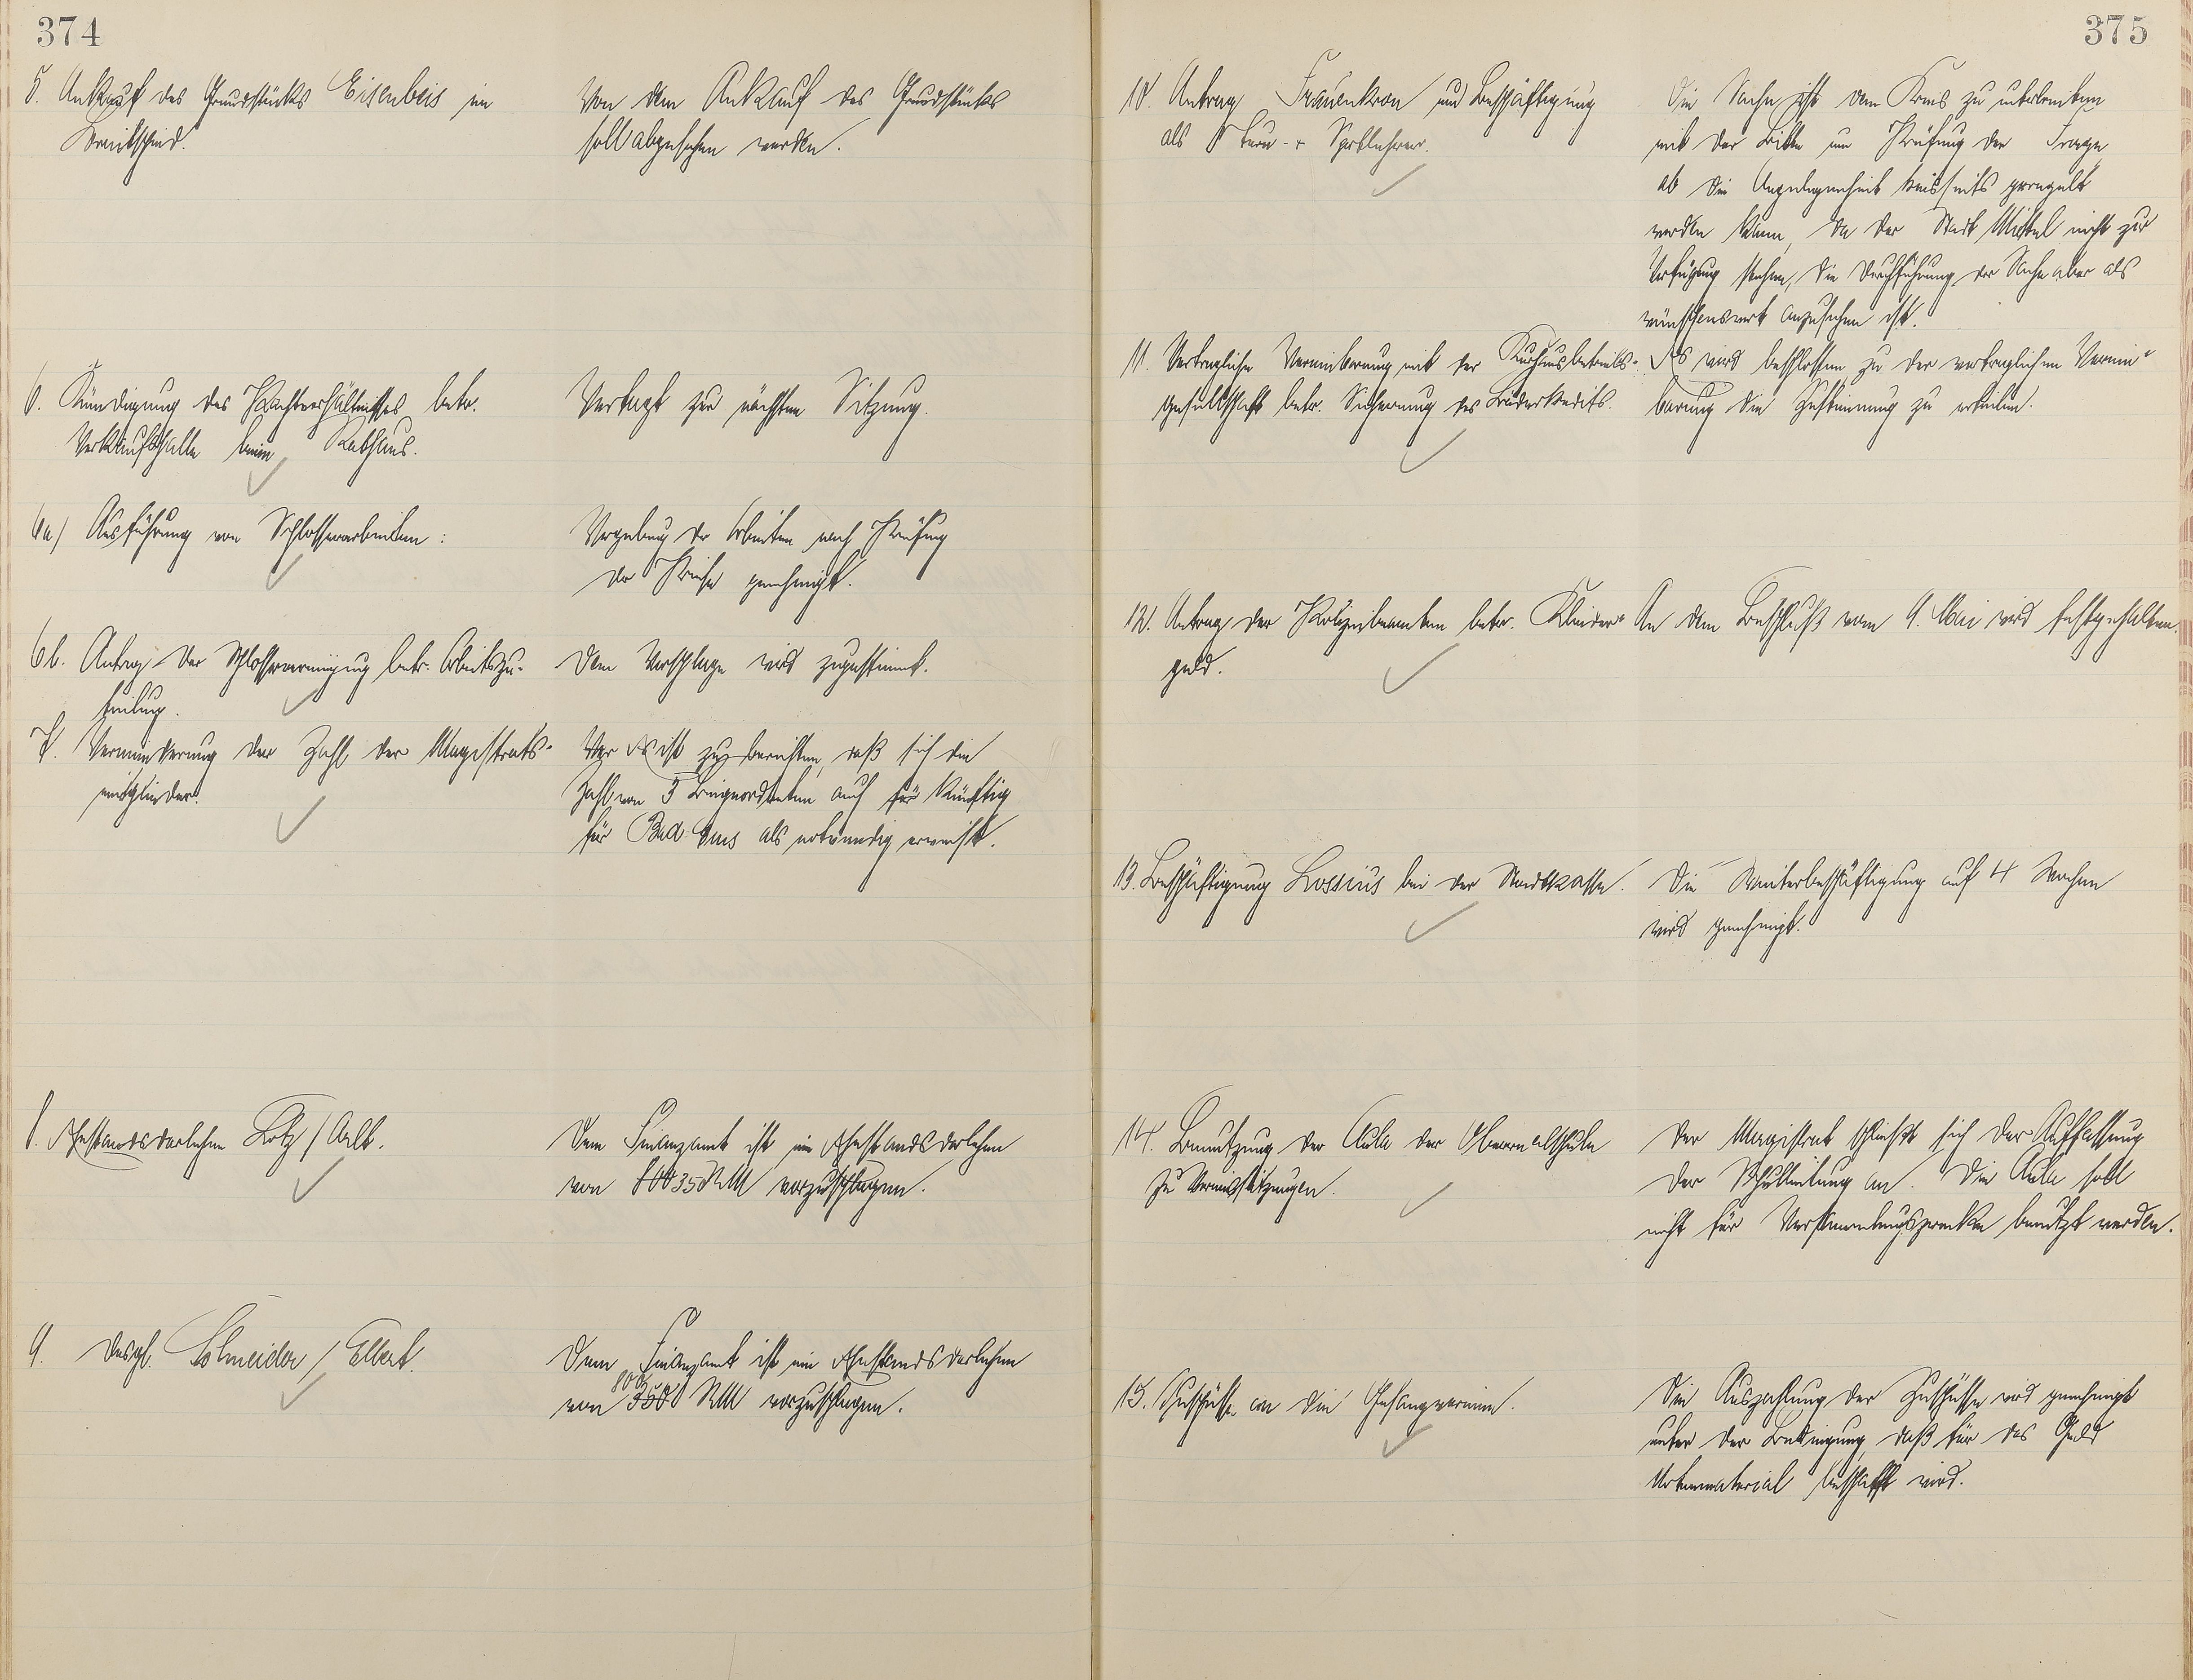 374
5. Ankauf des Grundstücks Eisenbeis im
Breitscheid.
Von dem Ankauf des Grundstücks
soll abgesehen werden.
6. Kündigung des Pachtverhältnisses betr.
Verkaufshalle beim Rathaus.
Vertagt zur nächsten Sitzung.
6a) Ausführung von Schlosserarbeiten:
Vergebung der Arbeiten nach Prüfung
der Preise genehmigt.
6b. Antrag der Schlosservereinigung betr. Arbeitszu-
teilung.
Dem Vorschlage wird zugestimmt.
7. Verminderung der Zahl der Magistrats-
mitglieder.
Es ist zu berichten, daß sich die
Zahl von 5 Beigeordneten auch für künftig
für Bad Ems als notwendig erweist.
8. Ehestandsdarlehen Lotz / Arlt.
Dem Finanzamt ist ein Ehestandsdarlehen
von 350 RM vorzuschlagen.
9. Desgl. Schneider / Elbert.
Dem Finanzamt ist ein Ehestandsdarlehen
von 800 RM vorzuschlagen.
375
10. Antrag Frauenkron und Beschäftigung
als Turn- + Sportlehrer.
Die Sache ist dem Kreis zu unterbreiten
mit der Bitte um Prüfung der Frage
ob die Angelegenheit kreisseits geregelt
werden kann, da der Stadt Mittel nicht zur
Verfügung stehen, die Durchführung der Sache aber als
wünschenswert anzusehen ist.
11. Vertragliche Vereinbarung mit der Kurhausbetriebs-
gesellschaft betr. Sicherung des Bäderkredits.
Es wird beschlossen zu der vertraglichen Verein-
barung die Zustimmung zu erteilen.
12. Antrag der Polizeibeamten betr. Kleider-
geld.
An dem Beschluß vom 9. Mai wird festgehalten.
13. Beschäftigung Lossius bei der Stadtkasse.
Die Weiterbeschäftigung auf 4 Wochen
wird genehmigt.
14. Benutzung der Aula der Oberrealschule
zu Vereinssitzungen.
Der Magistrat schließt sich der Auffassung
der Schulleitung an. Die Aula soll
nicht für Versammlungszwecke benutzt werden.
15. Zuschüsse an die Gesangvereine.
Die Auszahlung der Zuschüsse wird genehmigt
unter der Bedingung, daß für das Geld
Notenmaterial beschafft wird.